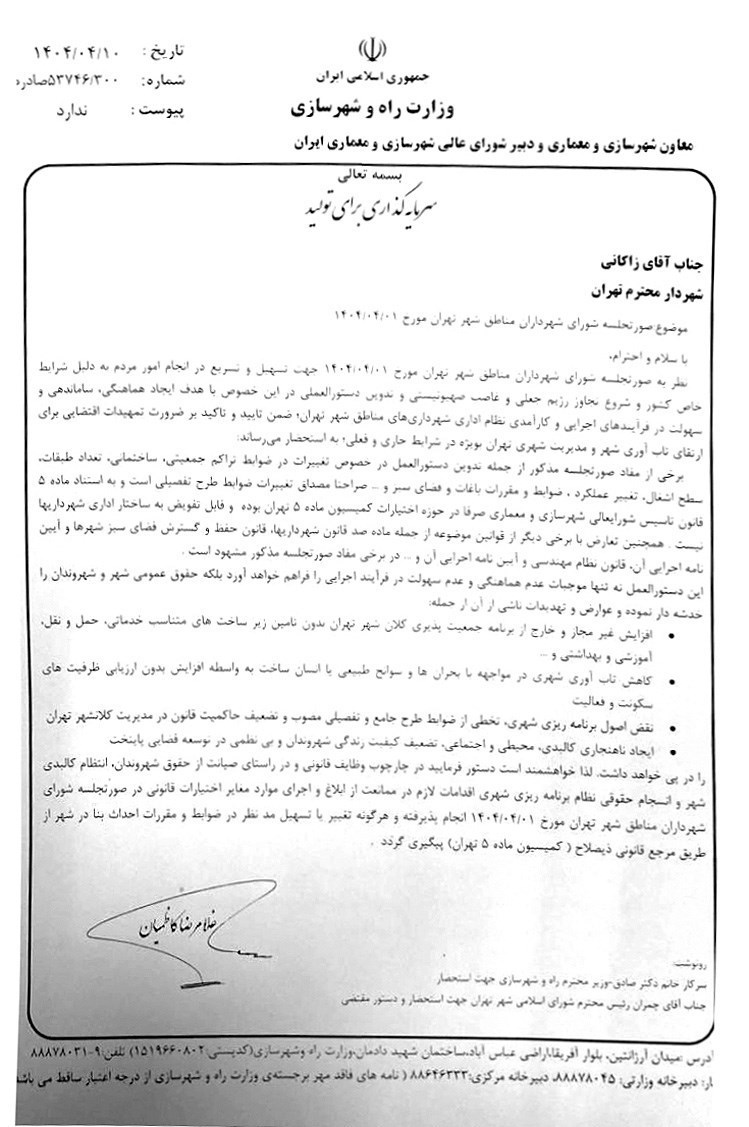 جمهوری اسلامی ایران
وزارت راه و شهرسازی
معاون شهرسازی و معماری و دبیر شورای عالی شهرسازی و معماری ایران
تاریخ : ۱۴۰۴/۰۴/۱۰
شماره: ۵۳۷۴۶/۳۰۰صادره
پیوست : ندارد
بسمه تعالی
سرمایه گذاری برای تولید
جناب آقای زاکانی
شهردار محترم تهران
موضوع:صورتجلسه شورای شهرداران مناطق شهر تهران مورخ ۱۴۰۴/۰۴/۰۱
با سلام و احترام،
نظر به صورتجلسه شورای شهرداران مناطق شهر تهران مورخ ۱۴۰۴/۰۴/۰۱ جهت تسهیل و تسریع در انجام امور مردم به دلیل شرایط
خاص کشور و شروع تجاوز رژیم جعلی و غاصب صهیونیستی و تدوین دستورالعملی در این خصوص با هدف ایجاد هماهنگی، ساماندهی و
سهولت در فرآیندهای اجرایی و کارآمدی نظام اداری شهرداری‌های مناطق شهر تهران؛ ضمن تایید و تاکید بر ضرورت تمهیدات اقتضایی برای
ارتقای تاب آوری شهر و مدیریت شهری تهران بویژه در شرایط جاری و فعلی؛ به استحضار می‌رساند:
برخی از مفاد صورتجلسه مذکور از جمله تدوین دستورالعمل در خصوص تغییرات در ضوابط تراکم جمعیتی، ساختمانی، تعداد طبقات،
سطح اشغال، تغییر عملکرد ، ضوابط و مقررات باغات و فضای سبز و ... صراحتا مصداق تغییرات ضوابط طرح تفصیلی است و به استناد ماده ۵
قانون تاسیس شورایعالی شهرسازی و معماری صرفا در حوزه اختیارات کمیسیون ماده ۵ تهران بوده و قابل تفویض به ساختار اداری شهرداریها
نیست . همچنین تعارض با برخی دیگر از قوانین موضوعه از جمله ماده صد قانون شهرداریها، قانون حفظ و گسترش فضای سبز شهرها و آیین
نامه اجرایی آن، قانون نظام مهندسی و آیین نامه اجرایی آن و ... در برخی مفاد صورتجلسه مذکور مشهود است .
این دستورالعمل نه تنها موجبات عدم هماهنگی و عدم سهولت در فرآیند اجرایی را فراهم خواهد آورد بلکه حقوق عمومی شهر و شهروندان را
خدشه دار نموده و عوارض و تهدیدات ناشی از آن از جمله:
• افزایش غیر مجاز و خارج از برنامه جمعیت پذیری کلان شهر تهران بدون تامین زیر ساخت های متناسب خدماتی، حمل و نقل،
آموزشی و بهداشتی و ...
• کاهش تاب آوری شهری در مواجهه با بحران ها و سوانح طبیعی یا انسان ساخت به واسطه افزایش بدون ارزیابی ظرفیت های
سکونت و فعالیت
• نقض اصول برنامه ریزی شهری، تخطی از ضوابط طرح جامع و تفصیلی مصوب و تضعیف حاکمیت قانون در مدیریت کلانشهر تهران
• ایجاد ناهنجاری کالبدی، محیطی و اجتماعی، تضعیف کیفیت زندگی شهروندان و بی نظمی در توسعه فضایی پایتخت
را در پی خواهد داشت. لذا خواهشمند است دستور فرمایید در چارچوب وظایف قانونی و در راستای صیانت از حقوق شهروندان، انتظام کالبدی
شهر و انسجام حقوقی نظام برنامه ریزی شهری اقدامات لازم در ممانعت از ابلاغ و اجرای موارد مغایر اختیارات قانونی در صورتجلسه شورای
شهرداران مناطق شهر تهران مورخ ۱۴۰۴/۰۴/۰۱ انجام پذیرفته و هرگونه تغییر یا تسهیل مد نظر در ضوابط و مقررات احداث بنا در شهر از
طریق مرجع قانونی ذیصلاح ( کمیسیون ماده ۵ تهران) پیگیری گردد .
غلامرضا کاظمیان
رونوشت:
سرکار خانم دکتر صادق-وزیر محترم راه و شهرسازی جهت استحضار
جناب آقای چمران رئیس محترم شورای اسلامی شهر تهران جهت استحضار و دستور مقتضی
آدرس :میدان آرژانتین، بلوار آفریقا،اراضی عباس آباد،ساختمان شهید دادمان،وزارت راه وشهرسازی(کدپستی:۱۵۱۹۶۶۰۸۰۲) تلفن:۹-۸۸۸۷۸۰۳۱
ار: دبیرخانه وزارتی: ۸۸۸۷۸۰۴۵، دبیرخانه مرکزی:۸۸۶۴۶۳۳۳ ( نامه های فاقد مهر برجسته‌ی وزارت راه و شهرسازی از درجه اعتبار ساقط می باشد